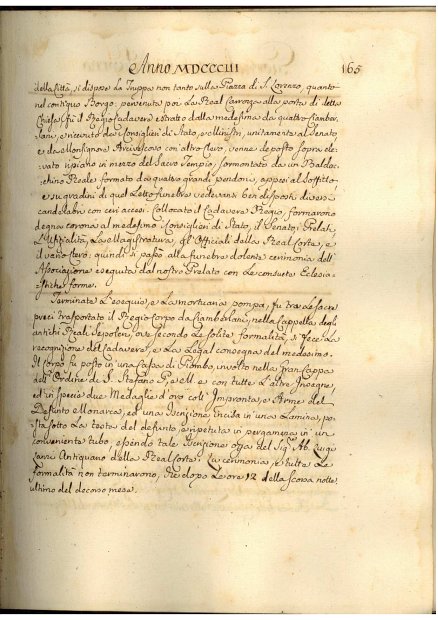 Anno MDCCCIII 165
della Città, si dispose la Truppa non tanto sulla Piazza di S. Lorenzo, quanto
nel contiguo Borgo; pervenuta poi La Real Carrozza alla porta di detta
Chiesa fù il Regio Cadavere estratto dalla medesima da quattro Ciamber-
lani, e ricevuto da Consiglieri di Stato, e Ministri, unitamente al Senato,
e da Monsignore Arcivescovo con altro Clero, venne deposto sopra ele-
vato in mezzo del Sacro Tempio, sormontato da un Baldac-
chino Reale formato da quattro grandi pendoni, appesi al Soffitto,
e su gradini di quel Letto funebre vedevansi ben disposti diversi
candelabri con ceri accesi. Collocato il Cadavere Regio, formarono
degna corona al medesimo Consiglieri di Stato, il Senato, Prelati,
L'Ufizialità, La Magistratura, gl' Officiali della Real Corte, e
il vario Clero; quindi si passò alla funebre dolente cerimonia dell'
Associazione eseguita dal nostro Prelato con Le consuete Eclesia-
stiche forme.
Terminate L'esequie, e La mortuaria pompa, fu tra Le sacre
preci trasportato il Regio Corpo da Ciamberlani, nella Cappella degli
antichi Reali Sepolcri, ove secondo Le solite formalità, si fece La
recognizione del Cadavere, e La Legal consegna del medesimo.
Il Corpo fu posto in una Cassa di Piombo, involto nella Gran Cappa
dell' Ordine di S. Stefano P. e M. e con tutte L'altre Insegne,
ed in specie due Medaglie d'oro coll' Impronta, e Arme del
Defunto Monarca, ed una Iscrizione incisa in una Lamina, po-
sta sotto La testa del defunto, e ripetuta in pergamena in un
conveniente tubo, essendo tale Iscrizione del Sig. Ab. Luigi
Lanzi Antiquario della Real Corte. La cerimonia, e tutte Le
formalità non terminarono, che dopo Le ore 12 della scorsa notte
ultimo del decorso mese.